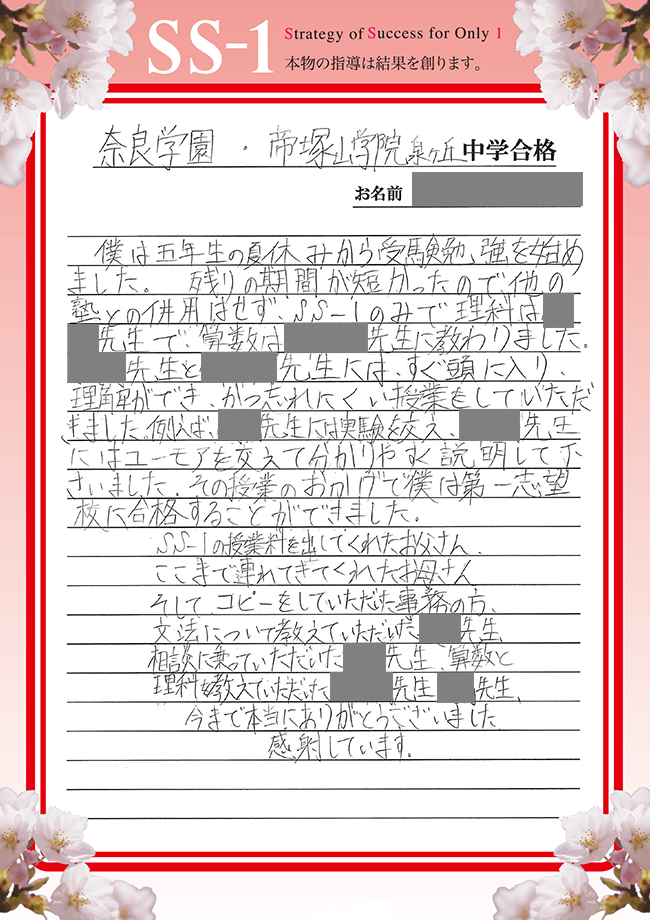 SS-1
Strategy of Success for Only 1
本物の指導は結果を創ります。
奈良学園・帝塚山学院泉ヶ丘中学合格
お名前
僕は五年生の夏休みから受験勉強を始め
ました。残りの期間が短かったので、他の
塾との併用はせず、SS-1のみで理科は
先生で、算数は先生に教わりました。
先生と先生には、すぐ頭に入り、
理解ができ、かつ忘れにくい授業をしていただ
きました。例えば、先生には実験を交え、先生
にはユーモアを交えて分かりやすく説明して下
さいました。その授業のおかげで僕は第一志望
校に合格することができました。
SS-1の授業料を出してくれたお父さん、
ここまで連れてきてくれたお母さん
そして、コピーをしていただいた事務の方、
文法について教えていただいた先生、
相談に乗っていただいた先生、算数と
理科を教えていただいた先生先生、
今まで本当にありがとうございました
感射しています。